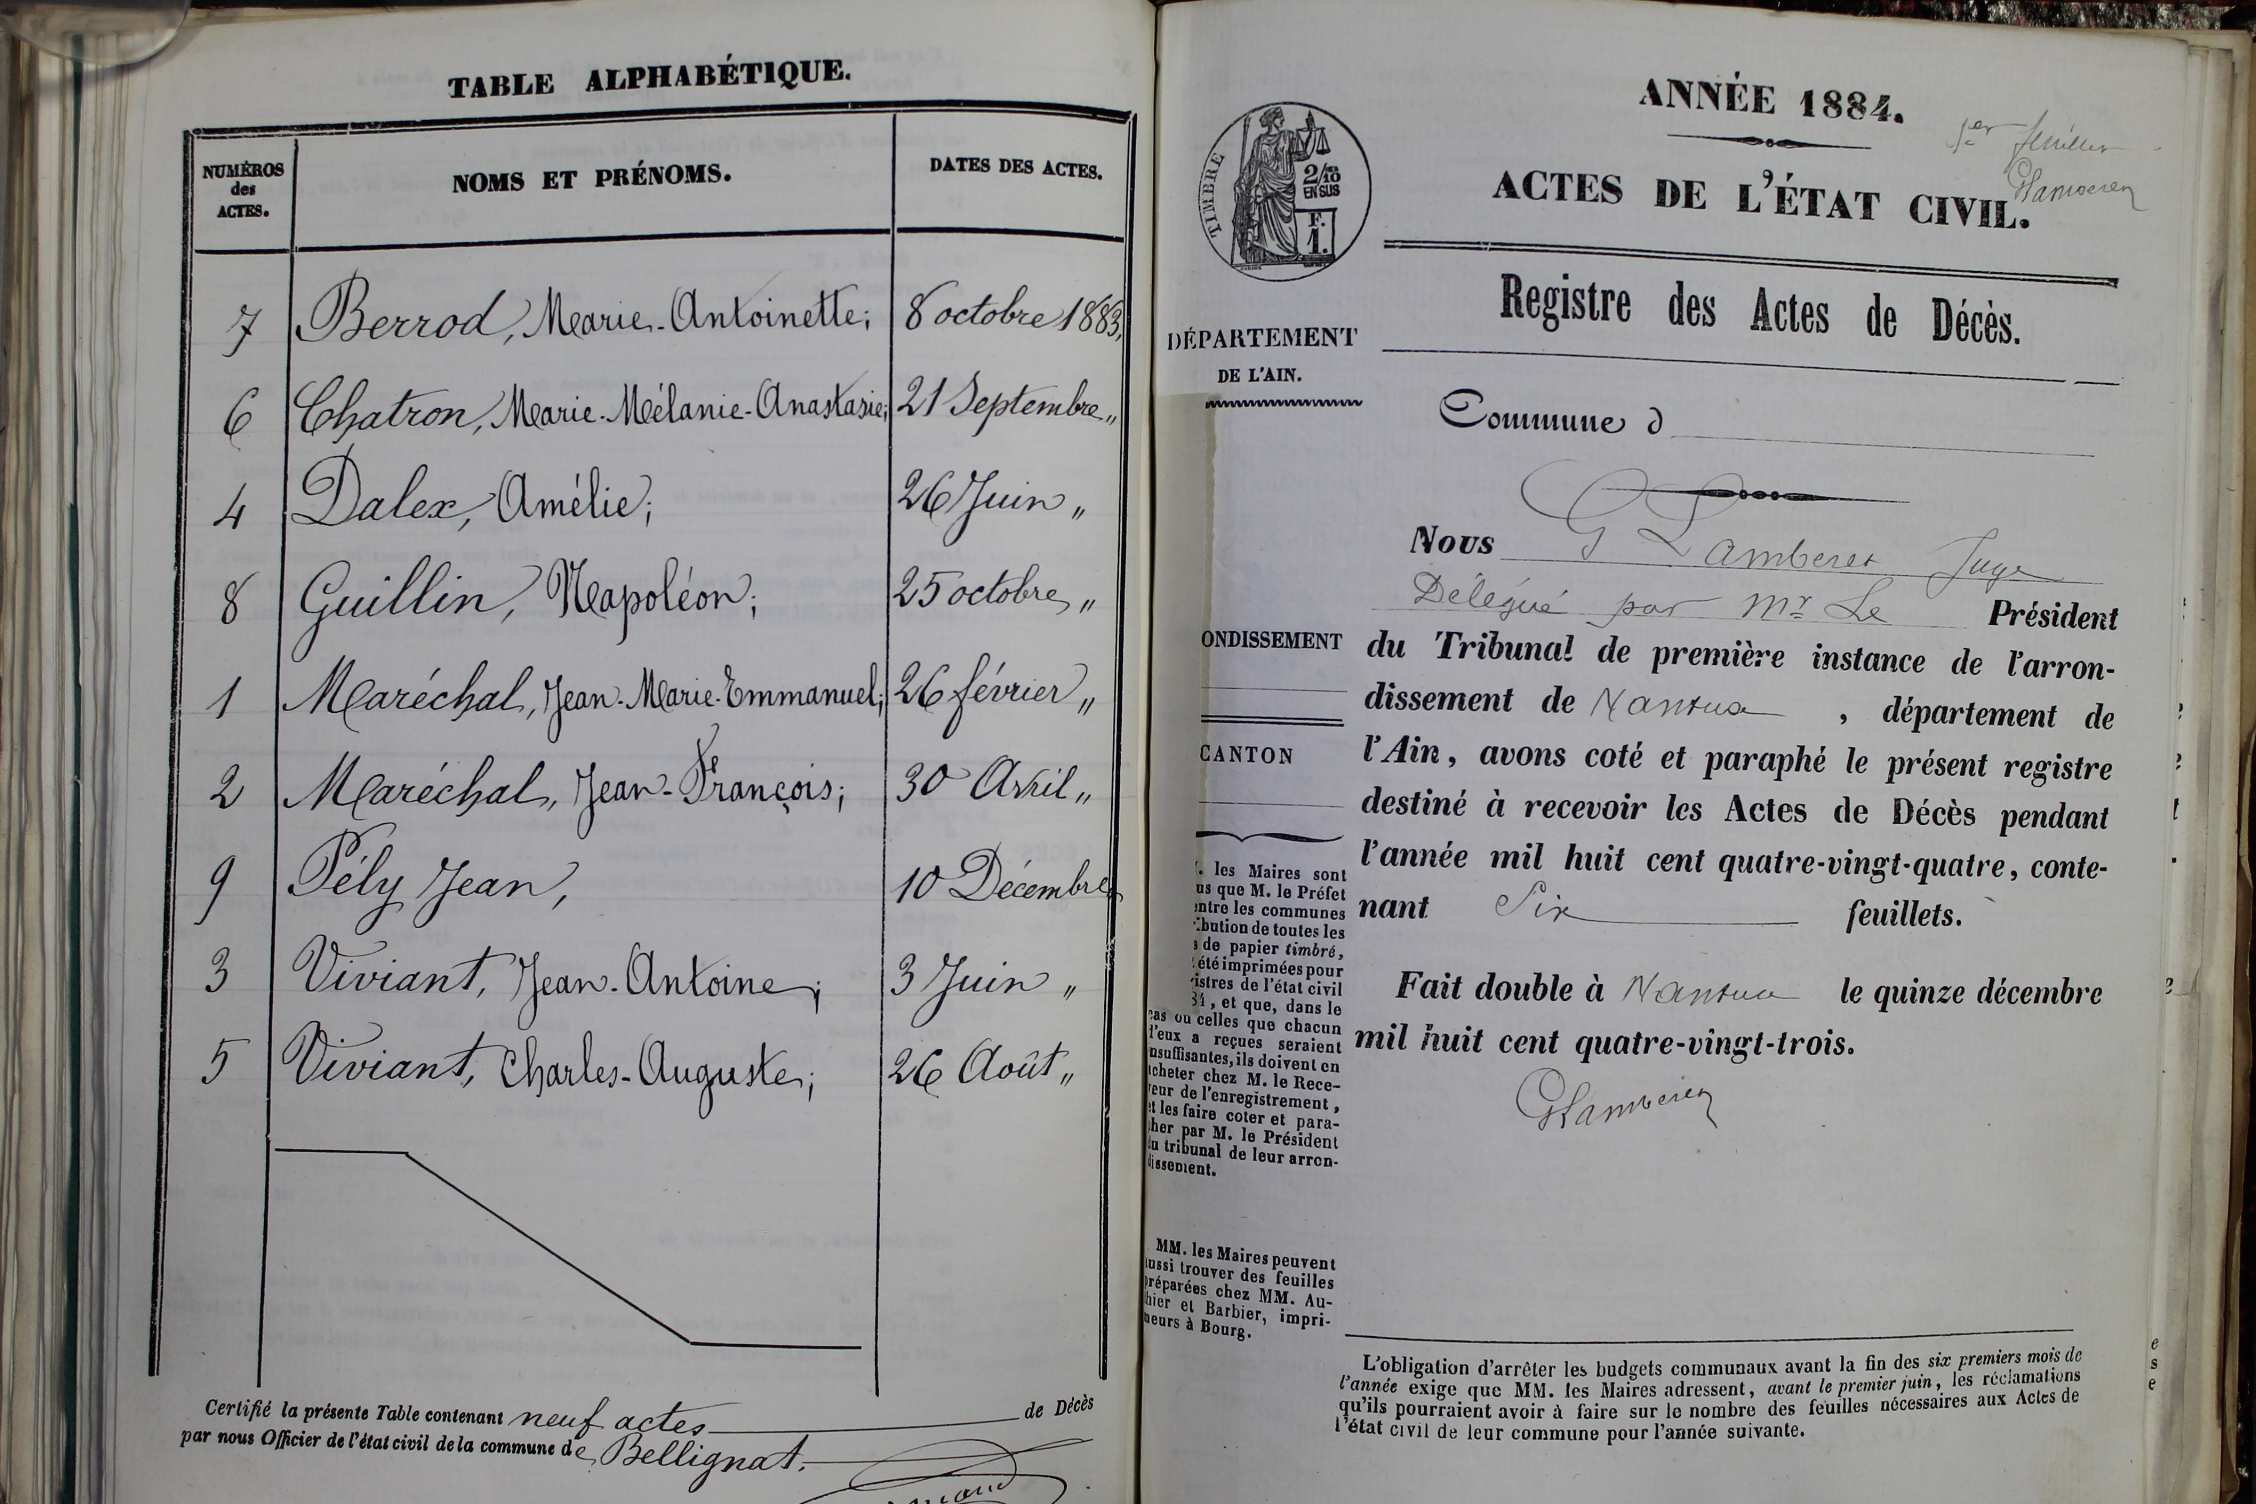 TABLE ALPHABÉTIQUE.
NUMÉROS
des
ACTES.
NOMS ET PRÉNOMS.
DATES DES ACTES.
7 Berrod, Marie-Antoinette; 8 octobre 1883,
6 Chatron, Marie-Mélanie-Anastasie; 21 Septembre „
4 Dalex, Amélie; 26 Juin „
8 Guillin, Napoléon; 25 octobre „
1 Maréchal, Jean-Marie-Emmanuel; 26 février „
2 Maréchal, Jean-François; 30 Avril „
9 Pély Jean, 10 Décembre
3 Viviant, Jean-Antoine; 3 Juin „
5 Viviant, Charles-Auguste; 26 Août „
Certifié la présente Table contenant neuf actes de Décès
par nous Officier de l'état civil de la commune de Bellignat.
ANNÉE 1884.
1er feuillet
GLamberet
ACTES DE L'ÉTAT CIVIL.
TIMBRE
2/10
EN SUS
F.
1.
Registre des Actes de Décès.
DÉPARTEMENT
DE L'AIN.
Commune d
Nous G Lamberet Juge
Délégué par Mr Le Président
ONDISSEMENT
du Tribunal de première instance de l'arron-
dissement de Nantua, département de
CANTON
l'Ain, avons coté et paraphé le présent registre
destiné à recevoir les Actes de Décès pendant
l'année mil huit cent quatre-vingt-quatre, conte-
nant Six feuillets.
Fait double à Nantua le quinze décembre
mil huit cent quatre-vingt-trois.
GLamberet
. les Maires sont
us que M. le Préfet
entre les communes
ibution de toutes les
s de papier timbré,
été imprimées pour
istres de l'état civil
84, et que, dans le
cas où celles que chacun
d'eux a reçues seraient
nsuffisantes, ils doivent en
acheter chez M. le Rece-
veur de l'enregistrement,
et les faire coter et para-
pher par M. le Président
du tribunal de leur arron-
dissement.
MM. les Maires peuvent
aussi trouver des feuilles
préparées chez MM. Au-
thier et Barbier, impri-
meurs à Bourg.
L'obligation d'arrêter les budgets communaux avant la fin des six premiers mois de
l'année exige que MM. les Maires adressent, avant le premier juin, les réclamations
qu'ils pourraient avoir à faire sur le nombre des feuilles nécessaires aux Actes de
l'état civil de leur commune pour l'année suivante.